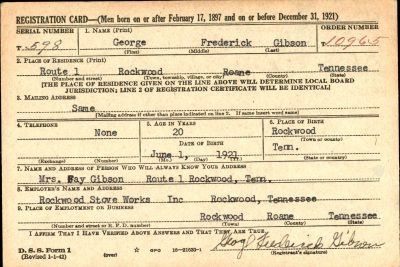 REGISTRATION CARD—(Men born on or after February 17, 1897 and on or before December 31, 1921)
SERIAL NUMBER 1. NAME (Print) ORDER NUMBER
T-598 George Frederick Gibson 10965
(First) (Middle) (Last)
2. PLACE OF RESIDENCE (Print)
Route 1 Rockwood Roane Tennessee
(Number and street) (Town, township, village, or city) (County) (State)
[THE PLACE OF RESIDENCE GIVEN ON THE LINE ABOVE WILL DETERMINE LOCAL BOARD
JURISDICTION; LINE 2 OF REGISTRATION CERTIFICATE WILL BE IDENTICAL]
3. MAILING ADDRESS
Same
[Mailing address if other than place indicated on line 2. If same insert word same]
4. TELEPHONE 5. AGE IN YEARS 6. PLACE OF BIRTH
None 20 Rockwood
DATE OF BIRTH (Town or county)
June 1, 1921 Tenn.
(Exchange) (Number) (Mo.) (Day) (Yr.) (State or country)
7. NAME AND ADDRESS OF PERSON WHO WILL ALWAYS KNOW YOUR ADDRESS
Mrs. Fay Gibson Route 1 Rockwood, Tenn.
8. EMPLOYER'S NAME AND ADDRESS
Rockwood Stove Works Inc Rockwood, Tennessee
9. PLACE OF EMPLOYMENT OR BUSINESS
Rockwood Roane Tennessee
(Number and street or R. F. D. number) (Town) (County) (State)
I AFFIRM THAT I HAVE VERIFIED ABOVE ANSWERS AND THAT THEY ARE TRUE.
D. S. S. Form 1
(Revised 1-1-42) (over) GPO 16—21630-1
Frederick Gibson
(Registrant's signature)